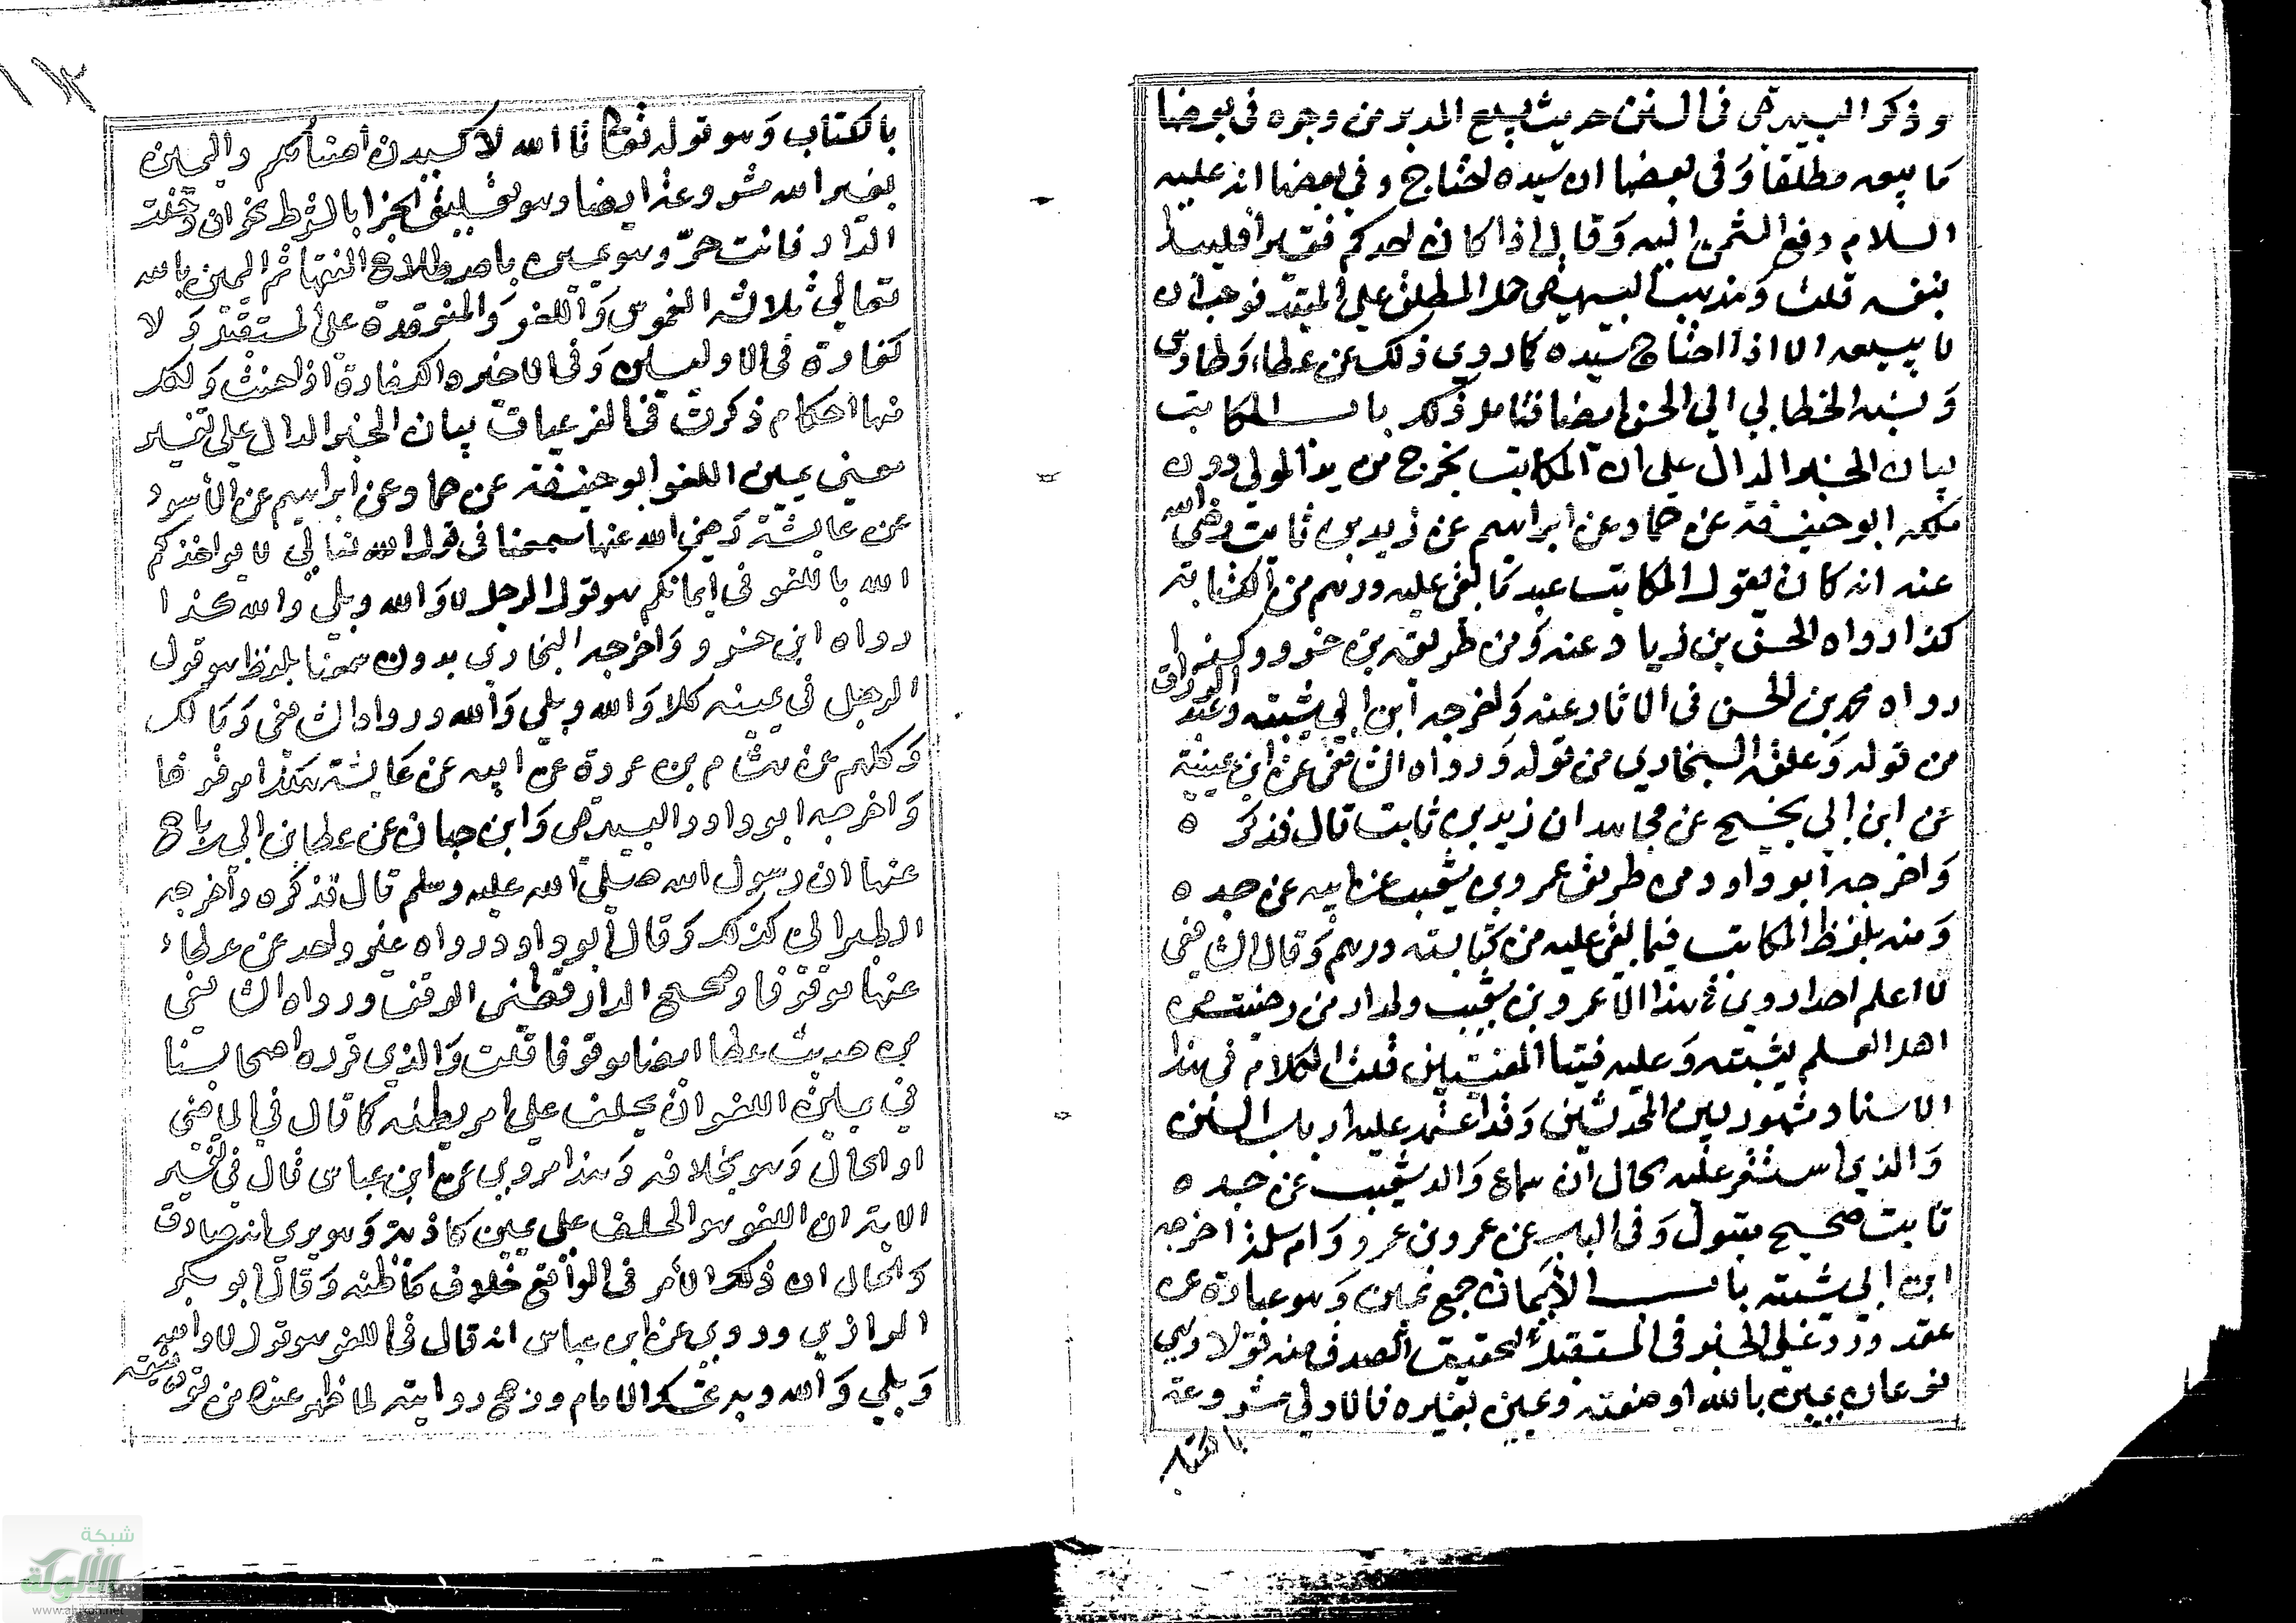 وذكر البيهقي في السنن حديث بيع المدبر من وجوه في بعضها
ما بيعه مطلقا وفي بعضها ان سيده احتاج وفي بعضها انه عليه
السلام دفع الثمن اليه وقال اذا كان احدكم فقيرا فليبدا
بنفسه قلت ومذهب البيهقي حمل المطلق على المقيد فوجب ان
لا يبيعه الا اذا احتاج سيده كما روي ذلك عن عطاء وطاوس
ونسبه الخطابي الى الحسن ايضا فتامل ذلك باب المكاتب
بيان الخبر الدال على ان المكاتب يخرج من يد المولى دون
ملكه ابو حنيفة عن حماد عن ابراهيم عن زيد بن ثابت رضي الله
عنه انه كان يقول المكاتب عبد ما بقي عليه درهم من الكتابة
كذا رواه الحسن بن زياد عنه ومن طريقه بن خسرو وكذا
رواه محمد بن الحسن في الاثار عنه واخرجه ابن ابي شيبة وعبد الرزاق
من قوله وعلقه البخاري من قوله ورواه الشافعي عن ابن عيينة
عن ابن ابي نجيح عن مجاهد ان زيد بن ثابت قال فذكره
واخرجه ابو داود من طريق عمرو بن شعيب عن ابيه عن جده
ومنه بلفظ المكاتب فيما بقي عليه من كتابته درهم وقال الشافعي
لا اعلم احدا روى هذا الا عمرو بن شعيب ولم ار من رضيت من
اهل العلم يثبته وعليه فتيا المفتيين قلت الكلام في هذا
الاسناد مشهور بين المحدثين وقد اعتمد عليه ارباب السنن
والذي استقر عليه الحال ان سماع والد شعيب عن جده
ثابت صحيح مقبول وفي الباب عن عمرو بن عمرو وام سلمة اخرجه
ابن ابي شيبة باب الايمان جمع يمين وهو عبارة عن
عقد ورد على الخبر في المستقبل لتحقيق الصدق منه قولا وهي
نوعان يمين بالله او صفته ويمين بغيره فالاولى مشروعة
بالكتاب
بالكتاب وهو قوله تعالى تالله لاكيدن اصنامكم واليمين
بغير الله مشروعة ايضا وهو تعليق الجزا بالشرط نحو ان دخلت
الدار فانت حر وهو يمين باصطلاح الفقها ثم اليمين بالله
تعالى ثلاثة الغموس واللغو والمنعقدة على المستقبل ولا
كفارة في الاوليين وفي الاخيره الكفارة اذا حنث ولكل
منها احكام ذكرت في الفرعيات بيان الخبر الدال على تفسير
معنى يمين اللغو ابو حنيفة عن حماد عن ابراهيم عن الاسود
عن عايشة رضي الله عنها سمعنا في قول الله تعالى لا يواخذكم
الله باللغو في ايمانكم هو قول الرجل لا والله وبلى والله كذا
رواه ابن خسرو واخرجه البخاري بدون سمعنا بلفظ هو قول
الرجل في يمينه كلا والله وبلى والله ورواه الشافعي ومالك
وكلهم عن هشام بن عروة عن ابيه عن عايشة هكذا موقوفا
واخرجه ابو داود والبيهقي وابن حبان عن عطا بن ابي رباح
عنها ان رسول الله صلى الله عليه وسلم قال فذكره واخرجه
الطبراني كذلك وقال ابو داود رواه غير واحد عن عطاء
عنها موقوفا وصحح الدارقطني الوقف ورواه الشافعي
من حديث عطا ايضا موقوفا قلت والذي قرره اصحابنا
في يمين اللغو ان يحلف على امر يظنه كما قال في الماضي
او الحال وهو بخلافه وهذا مروي عن ابن عباس قال في تفسير
الاية ان اللغو هو الحلف على يمين كاذبة وهو يرى انه صادق
والحال ان ذلك الامر في الواقع خلاف ما ظنه وقال ابو بكر
الرازي وروي عن ابن عباس انه قال في اللغو هو قول لا والله
وبلى والله وبه تمسك الامام ورجح روايته لما ظهر عنده من قوة